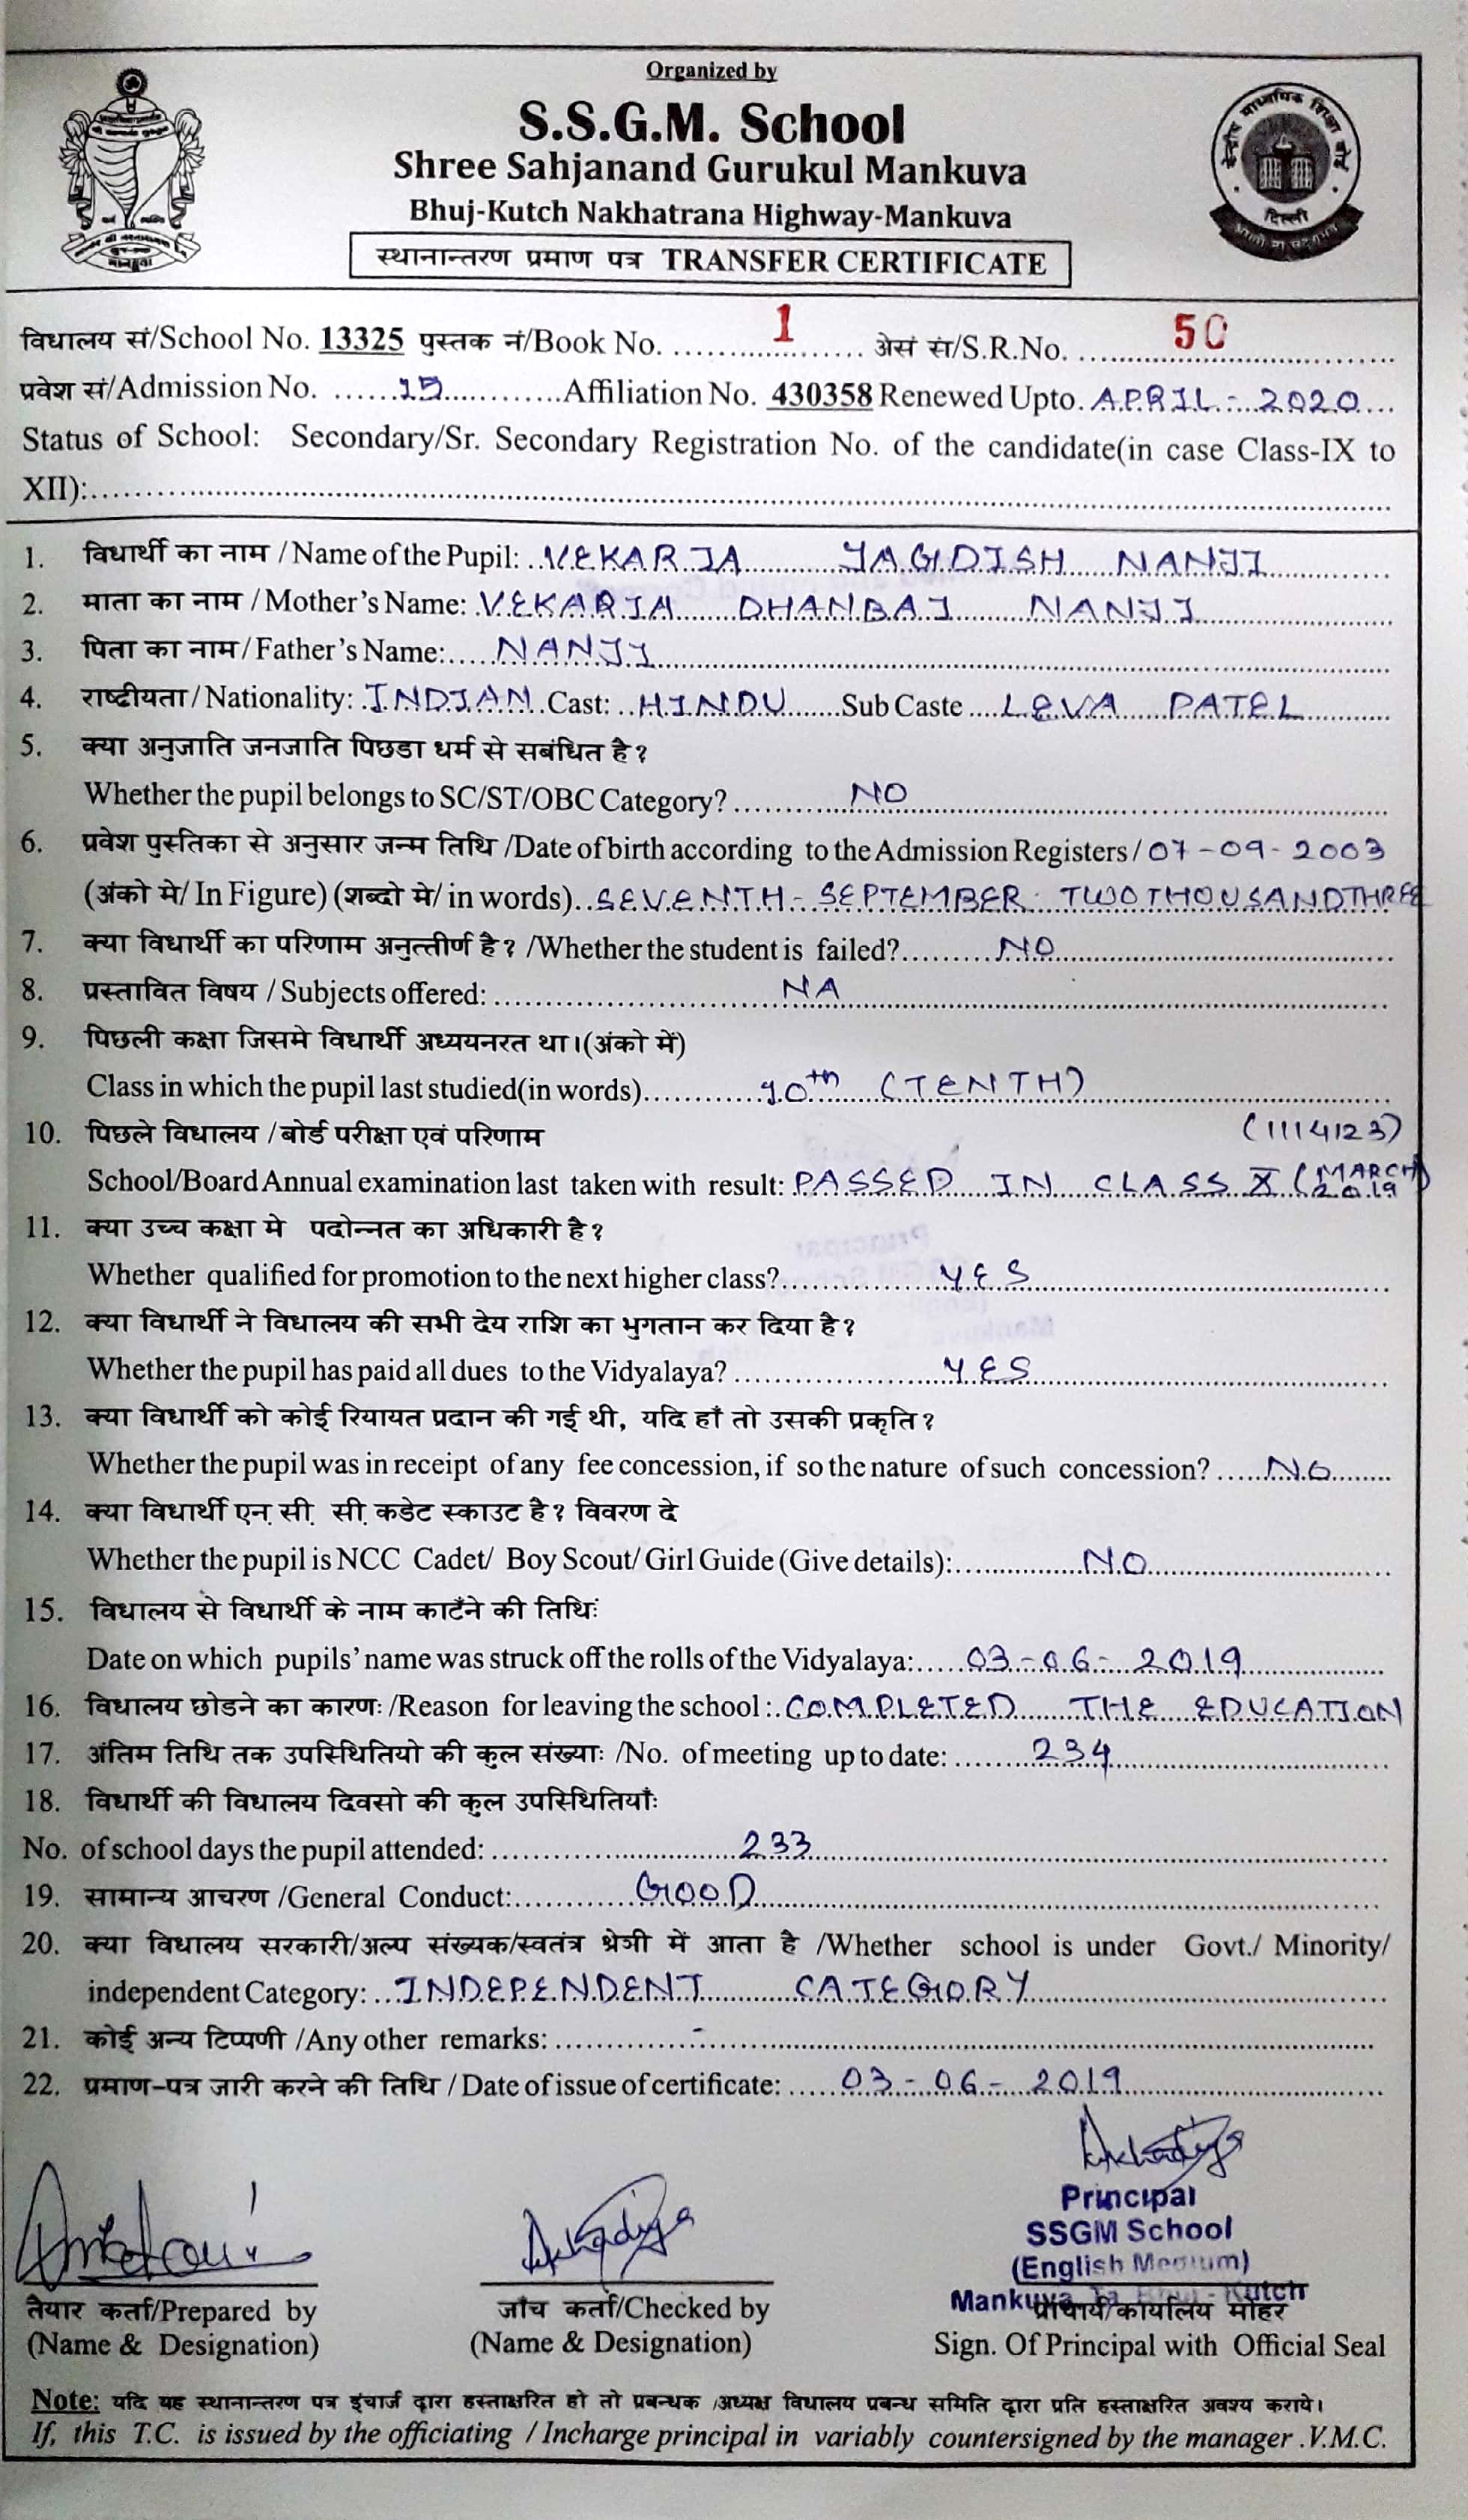 Organized by
S.S.G.M. School
Shree Sahjanand Gurukul Mankuva
Bhuj-Kutch Nakhatrana Highway-Mankuva
स्थानान्तरण प्रमाण पत्र TRANSFER CERTIFICATE
केन्द्रीय माध्यमिक शिक्षा बोर्ड
दिल्ली
विधालय सं/School No. 13325 पुस्तक नं/Book No. 1 अेसं सं/S.R.No. 50
प्रवेश सं/Admission No. 15 Affiliation No. 430358 Renewed Upto. APRIL - 2020
Status of School: Secondary/Sr. Secondary Registration No. of the candidate(in case Class-IX to
XII):
1. विधार्थी का नाम /Name of the Pupil: VEKARIA JAGDISH NANJI
2. माता का नाम /Mother's Name: VEKARIA DHANBAI NANJI
3. पिता का नाम/Father's Name: NANJI
4. राष्टीयता/Nationality: INDIAN Cast: HINDU Sub Caste LEVA PATEL
5. क्या अनुजाति जनजाति पिछडा धर्म से सबंधित है?
Whether the pupil belongs to SC/ST/OBC Category? NO
6. प्रवेश पुस्तिका से अनुसार जन्म तिथि /Date of birth according to the Admission Registers/ 07-09-2003
(अंको मे/ In Figure) (शब्दो मे/ in words) SEVENTH - SEPTEMBER - TWO THOUSAND THREE
7. क्या विधार्थी का परिणाम अनुत्तीर्ण है? /Whether the student is failed? NO
8. प्रस्तावित विषय / Subjects offered: NA
9. पिछली कक्षा जिसमे विधार्थी अध्ययनरत था।(अंको में)
Class in which the pupil last studied(in words) 10th (TENTH)
10. पिछले विधालय /बोर्ड परीक्षा एवं परिणाम (1114123)
School/Board Annual examination last taken with result: PASSED IN CLASS X (MARCH 2019)
11. क्या उच्च कक्षा मे पदोन्नत का अधिकारी है?
Whether qualified for promotion to the next higher class? YES
12. क्या विधार्थी ने विधालय की सभी देय राशि का भुगतान कर दिया है?
Whether the pupil has paid all dues to the Vidyalaya? YES
13. क्या विधार्थी को कोई रियायत प्रदान की गई थी, यदि हाँ तो उसकी प्रकृति?
Whether the pupil was in receipt of any fee concession, if so the nature of such concession? NO
14. क्या विधार्थी एन. सी. सी. कडेट स्काउट है? विवरण दे
Whether the pupil is NCC Cadet/ Boy Scout/ Girl Guide (Give details): NO
15. विधालय से विधार्थी के नाम काटँने की तिथिः
Date on which pupils' name was struck off the rolls of the Vidyalaya: 03-06-2019
16. विधालय छोडने का कारणः /Reason for leaving the school: COMPLETED THE EDUCATION
17. अंतिम तिथि तक उपस्थितियो की कुल संख्याः /No. of meeting up to date: 234
18. विधार्थी की विधालय दिवसो की कुल उपस्थितियाँः
No. of school days the pupil attended: 233
19. सामान्य आचरण /General Conduct: GOOD
20. क्या विधालय सरकारी/अल्प संख्यक/स्वतंत्र श्रेत्री में आता है /Whether school is under Govt./ Minority/
independent Category: INDEPENDENT CATEGORY
21. कोई अन्य टिप्पणी /Any other remarks: -
22. प्रमाण-पत्र जारी करने की तिथि / Date of issue of certificate: 03-06-2019
Principal
SSGM School
(English Medium)
Mankuva Ta. Bhuj - Kutch
तैयार कर्ता/Prepared by जाँच कर्ता/Checked by प्राचार्य/कार्यालय मोहर
(Name & Designation) (Name & Designation) Sign. Of Principal with Official Seal
Note: यदि यह स्थानान्तरण पत्र इंचार्ज द्वारा हस्ताक्षरित हो तो प्रबन्धक /अध्यक्ष विधालय प्रबन्ध समिति द्वारा प्रति हस्ताक्षरित अवश्य कराये।
If, this T.C. is issued by the officiating / Incharge principal in variably countersigned by the manager .V.M.C.